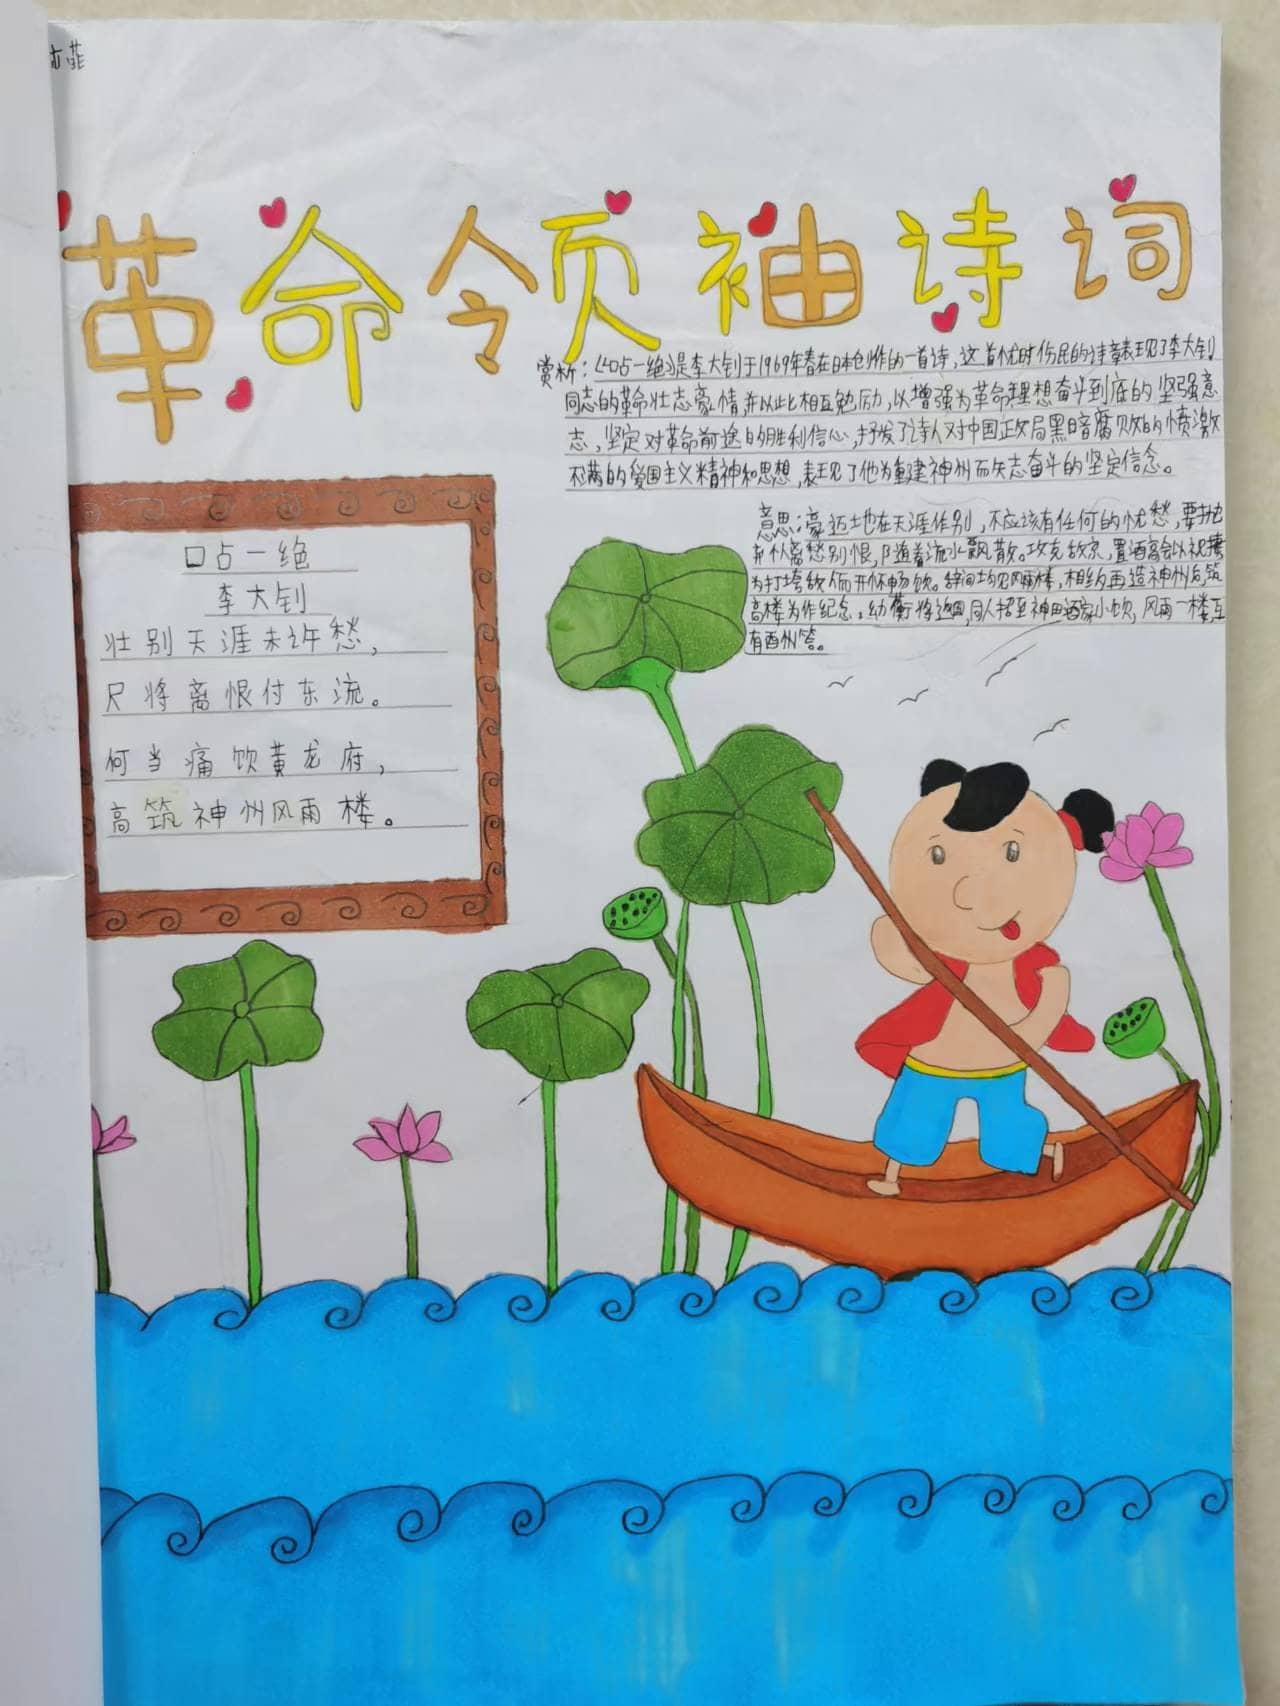 菲
革命领袖诗词
赏析：《口占一绝》是李大钊于1969年春在日本创作的一首诗，这首忧时伤民的诗章表现了李大钊
同志的革命壮志豪情，并以此相互勉励，以增强为革命理想奋斗到底的坚强意
志，坚定对革命前途的胜利信心，抒发了诗人对中国正政局黑暗腐败的愤激
不满的爱国主义精神和思想，表现了他为重建神州而矢志奋斗的坚定信念。
口占一绝
李大钊
壮别天涯未许愁，
尺将离恨付东流。
何当痛饮黄龙府，
高筑神州风雨楼。
意思：豪迈地在天涯作别，不应该有任何的忧愁，要抛
离愁别恨，随着流水飘散。攻克敌京，置酒高会以祝捷
为打垮敌人而开怀畅饮。辞间均见风雨楼，相约再造神州后，筑
高楼为作纪念。幼蘅将返国，同人招至神田酒家小饮，风雨一楼，互
有酉州答。